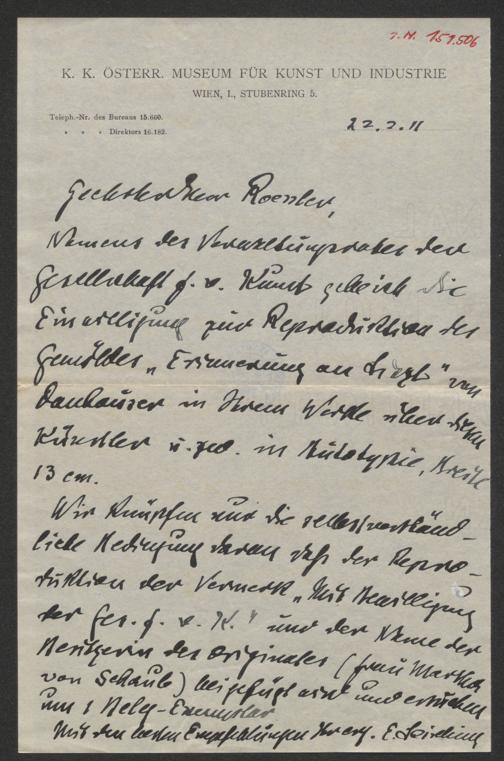 J. N. 151.506
K. K. ÖSTERR. MUSEUM FÜR KUNST UND INDUSTRIE
WIEN, I., STUBENRING 5.
Teleph.-Nr. des Bureaus 15.660.
„ „ „ Direktors 16.182.
22.2.11
Geehrter Herr Roessler,
Namens des Verwaltungsrates der
Gesellschaft f. v. Kunst gebe ich die
Einwilligung zur Reproduktion des
Gemäldes „Erinnerung an Liszt" von
Danhauser in Ihrem Werke über diesen
Künstler u. zw. in Autotypie, Breite
13 cm.
Wir knüpfen nur die selbstverständ-
liche Bedingung daran daß der Repro-
duktion der Vermerk „Mit Bewilligung
der Ges. f. v. K." und der Name der
Besitzerin des Originales (Frau Martha
von Schaub) beigefügt wird und ersuchen
um 1 Beleg-Exemplar
Mit den besten Empfehlungen Ihr erg. E.